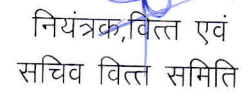 नियंत्रक,वित्त एवं
सचिव वित्त समिति